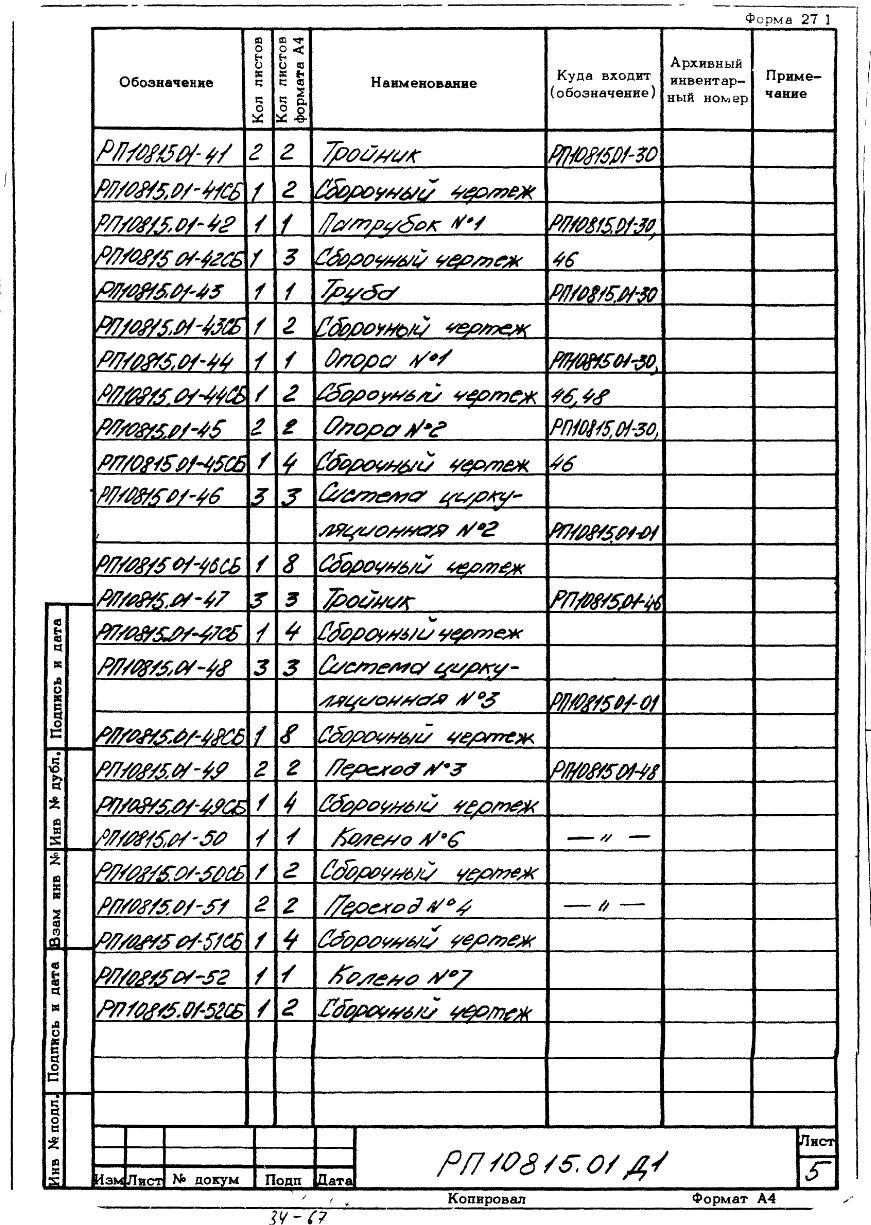 Форма 27 1
Обозначение Кол листов Кол листов формата А4 Наименование Куда входит (обозначение) Архивный инвентарный номер Примечание
РП10815.01-41 2 2 Тройник РП10815.01-30
РП10815.01-41СБ 1 2 Сборочный чертеж
РП10815.01-42 1 1 Патрубок №1 РП10815.01-30,
РП10815 01-42СБ 1 3 Сборочный чертеж 46
РП10815.01-43 1 1 Труба РП10815.01-30
РП10815.01-43СБ 1 2 Сборочный чертеж
РП10815.01-44 1 1 Опора №1 РП10815 01-30,
РП10815.01-44СБ 1 2 Сборочный чертеж 46,48
РП10815.01-45 2 2 Опора №2 РП10815.01-30,
РП10815.01-45СБ 1 4 Сборочный чертеж 46
РП10815 01-46 3 3 Система цирку-
ляционная №2 РП10815.01-01
РП10815 01-46СБ 1 8 Сборочный чертеж
РП10815.01-47 3 3 Тройник РП10815.01-46
РП10815.01-47СБ 1 4 Сборочный чертеж
РП10815.01-48 3 3 Система цирку-
ляционная №3 РП10815.01-01
РП10815.01-48СБ 1 8 Сборочный чертеж
РП10815.01-49 2 2 Переход №3 РП10815.01-48
РП10815.01-49СБ 1 4 Сборочный чертеж
РП10815.01-50 1 1 Колено №6 — " —
РП10815.01-50СБ 1 2 Сборочный чертеж
РП10815.01-51 2 2 Переход №4 — " —
РП10815 01-51СБ 1 4 Сборочный чертеж
РП10815.01-52 1 1 Колено №7
РП10815.01-52СБ 1 2 Сборочный чертеж
Подпись и дата
Инв № дубл.
Взам инв №
Подпись и дата
Инв № подл.
Изм Лист № докум Подп Дата
РП10815.01 Д1
Лист
5
Копировал Формат А4
34-67